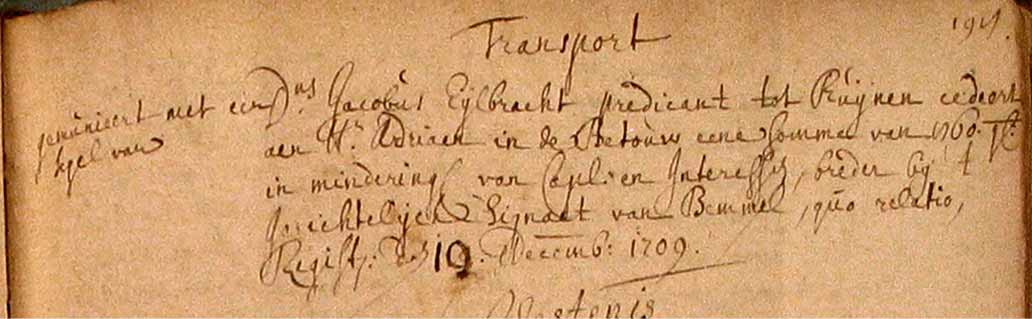 Transport
191.
gemuniseert met een
segel van
Dns Jacobus Eylbracht predicant tot Ruynen cedeert
aen Hr. Adriaen in de Betouw eene somme van 1760. gl:
in mindering van Capl: en Interesse, breder by t
Gerichtelijcke Signaet van Bemmel, quo relatio,
Regist: des 19. Decemb: 1709.